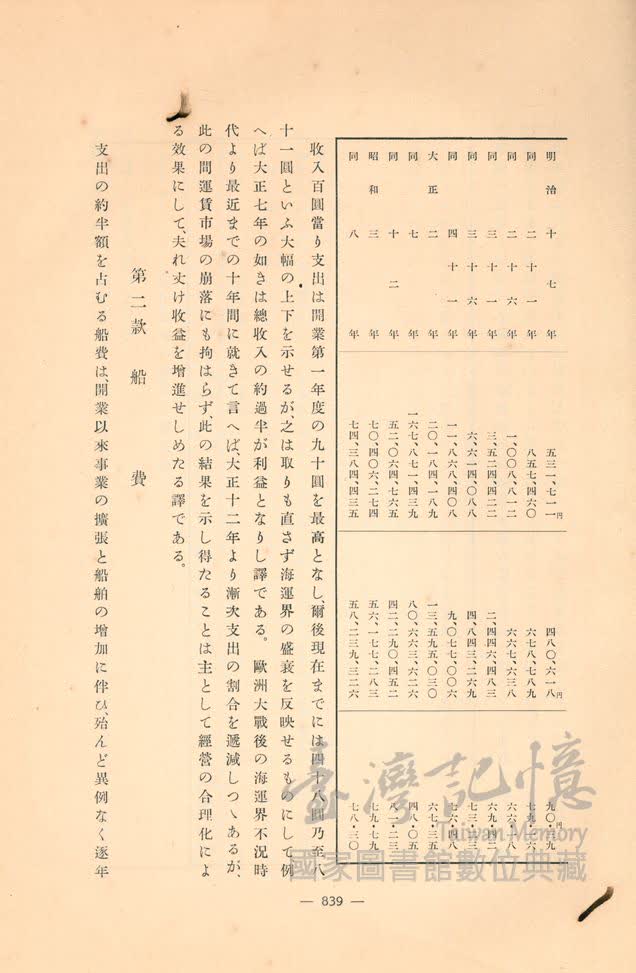 明治十七年 五三一、七一一円 四八〇、六一八円 九〇・三九円
同二十一年 八五七、四六〇 六七八、七八九 七九・一六
同二十六年 一、〇〇八、八一二 六六七、六三八 六六・一八
同三十一年 三、五二四、四二二 二、四四六、四八三 六九・四二
同三十六年 六、六一四、〇八八 四、八四三、二六九 七三・二三
同四十一年 一一、八六八、四〇八 九、〇七七、〇〇六 七六・四八
大正二年 二〇、一八四、一八九 一三、五九五、〇三〇 六七・三五
同七年 一六七、八七一、四三九 八〇、六六三、六二六 四八・〇五
同十二年 五二、〇六四、七六五 四二、二九〇、四五二 八一・二三
昭和三年 七〇、四〇六、二七四 五六、一七七、二八三 七九・七九
同八年 七四、三八四、四三五 五八、二三九、三二六 七八・三〇
收入百圓當り支出は開業第一年度の九十圓を最高となし、爾後現在までには四十八圓乃至八
十一圓といふ大幅の上下を示せるが、之は取りも直さず海運界の盛衰を反映せるものにして例
へば大正七年の如きは總收入の約過半が利益となりし譯である。歐洲大戰後の海運界不況時
代より最近までの十年間に就きて言へば、大正十二年より漸次支出の割合を遞減しつゝあるが、
此の間運賃市場の崩落にも拘はらず、此の結果を示し得たることは主として經營の合理化によ
る效果にして、夫れ丈け收益を增進せしめたる譯である。
第二款 船費
支出の約半額を占むる船費は、開業以來事業の擴張と船舶の增加に伴ひ、殆んど異例なく逐年
臺灣記憶
Taiwan Memory
國家圖書館數位典藏
— 839 —